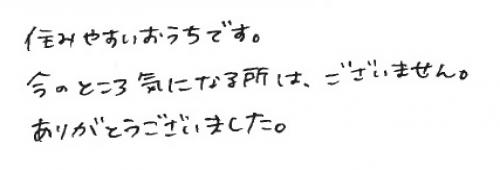 住みやすいおうちです。
今のところ気になる所は、ございません。
ありがとうございました。